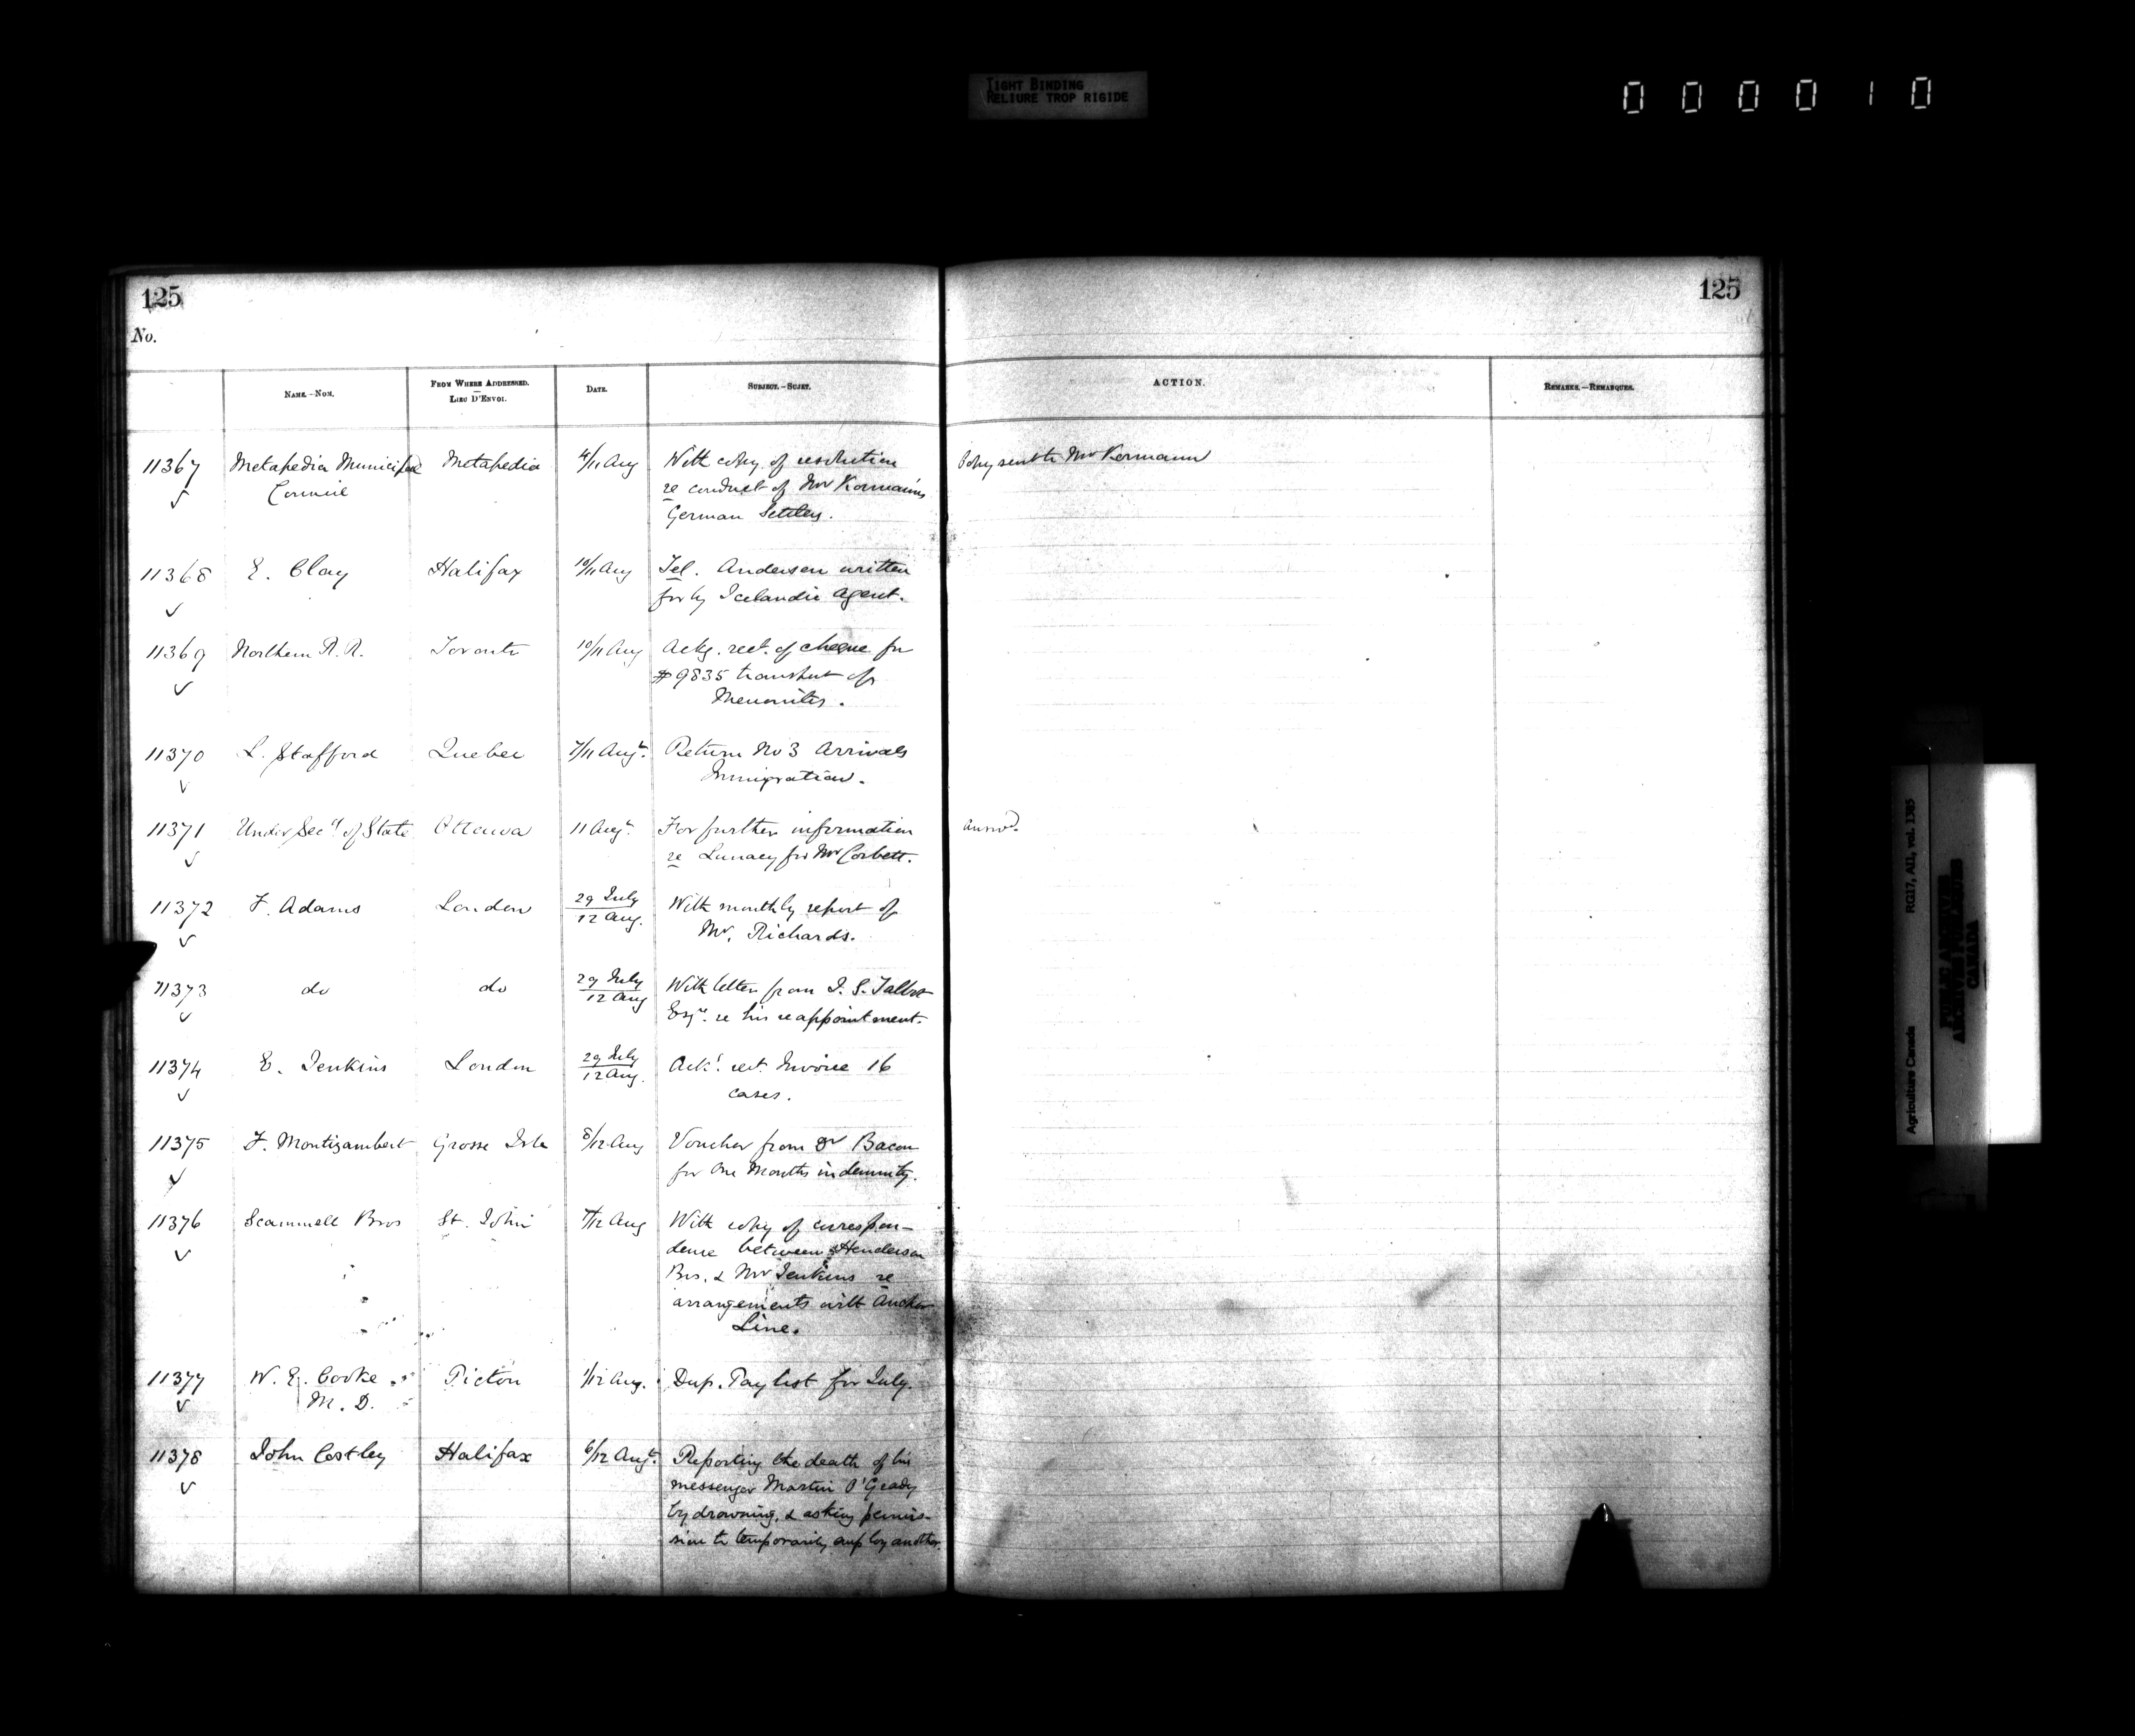 TIGHT BINDING
RELIURE TROP RIGIDE
000010
125
125
No.
NAME.-NOM.
FROM WHERE ADDRESSED.
LIEU D'ENVOI.
DATE.
SUBJECT.-SUJET.
ACTION.
REMARKS.-REMARQUES.
11367 Metapedia Municipal Metapedia 4/11 Aug With copy of resolution Copy sent to Mr Kormann
Council re conduct of Mr Kormann's
German Settlers.
11368 E. Clay Halifax 10/11 Aug Tel. Andersen written
for by Icelandic Agent.
11369 Northern R.R. Toronto 10/11 Aug Ackg. rect. of cheque for
$9835 transport of
Menonites.
11370 L. Stafford Quebec 7/11 Augt. Return No 3 Arrivals
Immigration.
11371 Under Secy of State Ottawa 11 Augt. For further information answd.
re Lunacy for Mr Corbett.
11372 F. Adams London 29 July With monthly report of
12 Aug. Mr. Richards.
11373 do do 29 July With letter from J. S. Talbot
12 Aug Esqre. re his reappointment.
11374 E. Jenkins London 29 July Ack. rect. Invoice 16
12 Aug. cases.
11375 F. Montizambert Grosse Isle 8/12 Aug Voucher from Dr Bacon
for One Months indemnity.
11376 Scammell Bros St. John 7/12 Aug With copy of correspon-
dence between Henderson
Bros. & Mr Jenkins re
arrangements with Anchor
Line.
11377 W. E. Cooke Pictou 1/12 Aug. Dup. Paylist for July.
M. D.
11378 John Costley Halifax 6/12 Augt. Reporting the death of his
messenger Martin O'Grady
by drowning, & asking permis-
sion to temporarily employ another
Agriculture Canada RG17, AII, vol. 1385
PUBLIC ARCHIVES
ARCHIVES PUBLIQUES
CANADA